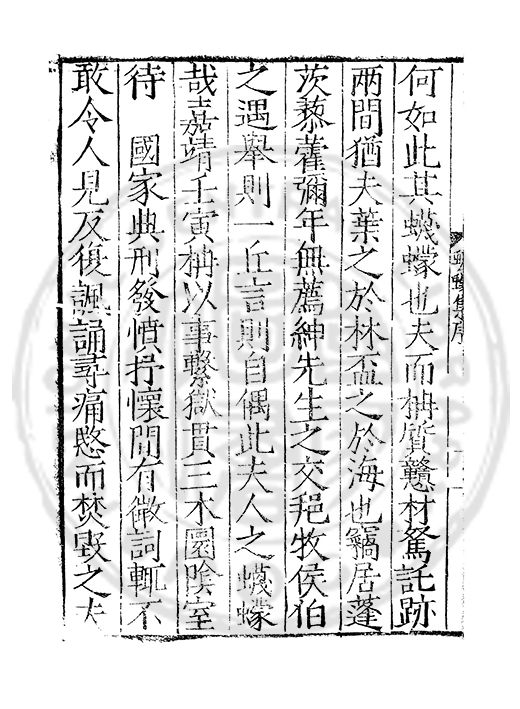 蠛蠓集序
何如此其蠛蠓也夫而柟質戇材駑託跡
兩間猶夫葉之於林盃之於海也竊居蓬
茨藜藿彌年無薦紳先生之交牧侯伯
之遇舉則一丘言則自偶此夫人之蠛蠓
哉嘉靖壬寅柟以事繫獄貫三木圜陰室
待　國家典刑發憤抒懷間有微詞輒不
敢令人見反復諷誦尋痛愍而焚毀之夫